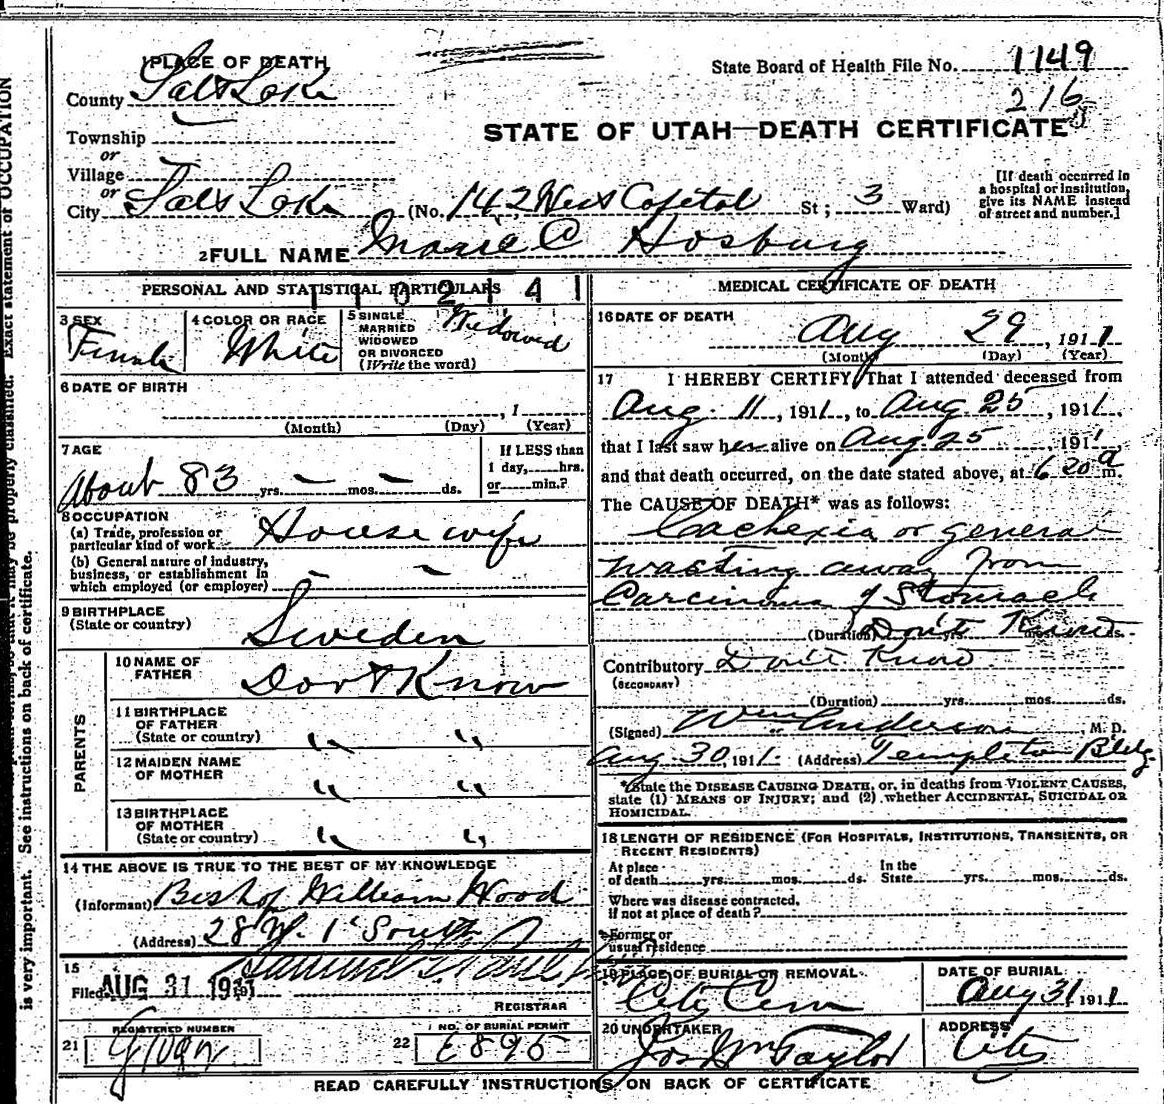 1 PLACE OF DEATH
State Board of Health File No. 1149
County Salt Lake
216
Township
STATE OF UTAH—DEATH CERTIFICATE
or
Village
or
City Salt Lake (No. 142 West Capitol St ; 3 Ward)
[If death occurred in
a hospital or institution,
give its NAME instead
of street and number.]
2 FULL NAME Marie C Hosburg
PERSONAL AND STATISTICAL PARTICULARS
1102141
3 SEX
Female
4 COLOR OR RACE
White
5 SINGLE
MARRIED
WIDOWED
OR DIVORCED
(Write the word)
Widowed
6 DATE OF BIRTH
, 1
(Month) (Day) (Year)
7 AGE
About 83 yrs. — mos. — ds.
If LESS than
1 day, hrs.
or min.?
8 OCCUPATION
(a) Trade, profession or
particular kind of work House wife
(b) General nature of industry,
business, or establishment in
which employed (or employer)
9 BIRTHPLACE
(State or country)
Sweden
PARENTS
10 NAME OF
FATHER
Dont Know
11 BIRTHPLACE
OF FATHER
(State or country) " "
12 MAIDEN NAME
OF MOTHER
" "
13 BIRTHPLACE
OF MOTHER
(State or country) " "
14 THE ABOVE IS TRUE TO THE BEST OF MY KNOWLEDGE
(Informant) Bishop William Wood
(Address) 28 W. 1st South
15
Filed AUG 31 1911
REGISTRAR
REGISTERED NUMBER
21
NO. OF BURIAL PERMIT
22 E895
MEDICAL CERTIFICATE OF DEATH
16 DATE OF DEATH
Aug 29, 1911
(Month) (Day) (Year)
17 I HEREBY CERTIFY, That I attended deceased from
Aug. 11, 1911, to Aug 25, 1911.
that I last saw her alive on Aug. 25, 1911
and that death occurred, on the date stated above, at 6 20 a m.
The CAUSE OF DEATH* was as follows:
Cachexia or general
wasting away from
Carcinoma of Stomach
(Duration) Don't Know ds.
Contributory Don't Know
(SECONDARY)
(Duration) yrs. mos. ds.
(Signed) Wm Anderson, M. D.
Aug 30, 1911. (Address) Templeton Bldg.
*State the DISEASE CAUSING DEATH, or, in deaths from VIOLENT CAUSES,
state (1) MEANS OF INJURY; and (2) whether ACCIDENTAL, SUICIDAL OR
HOMICIDAL.
18 LENGTH OF RESIDENCE (FOR HOSPITALS, INSTITUTIONS, TRANSIENTS, OR
RECENT RESIDENTS)
At place
of death yrs. mos. ds.
In the
State yrs. mos. ds.
Where was disease contracted,
if not at place of death?
Former or
usual residence
19 PLACE OF BURIAL OR REMOVAL
City Cem
DATE OF BURIAL
Aug 31, 1911
20 UNDERTAKER
Jos Wm Taylor
ADDRESS
City
READ CAREFULLY INSTRUCTIONS ON BACK OF CERTIFICATE
Exact statement of OCCUPATION
is very important. See instructions on back of certificate.